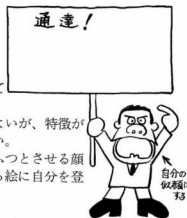 通達！
て
よいが、特徴が
い。
ふつとさせる顔
る絵に自分を登
自分の
似顔に
する